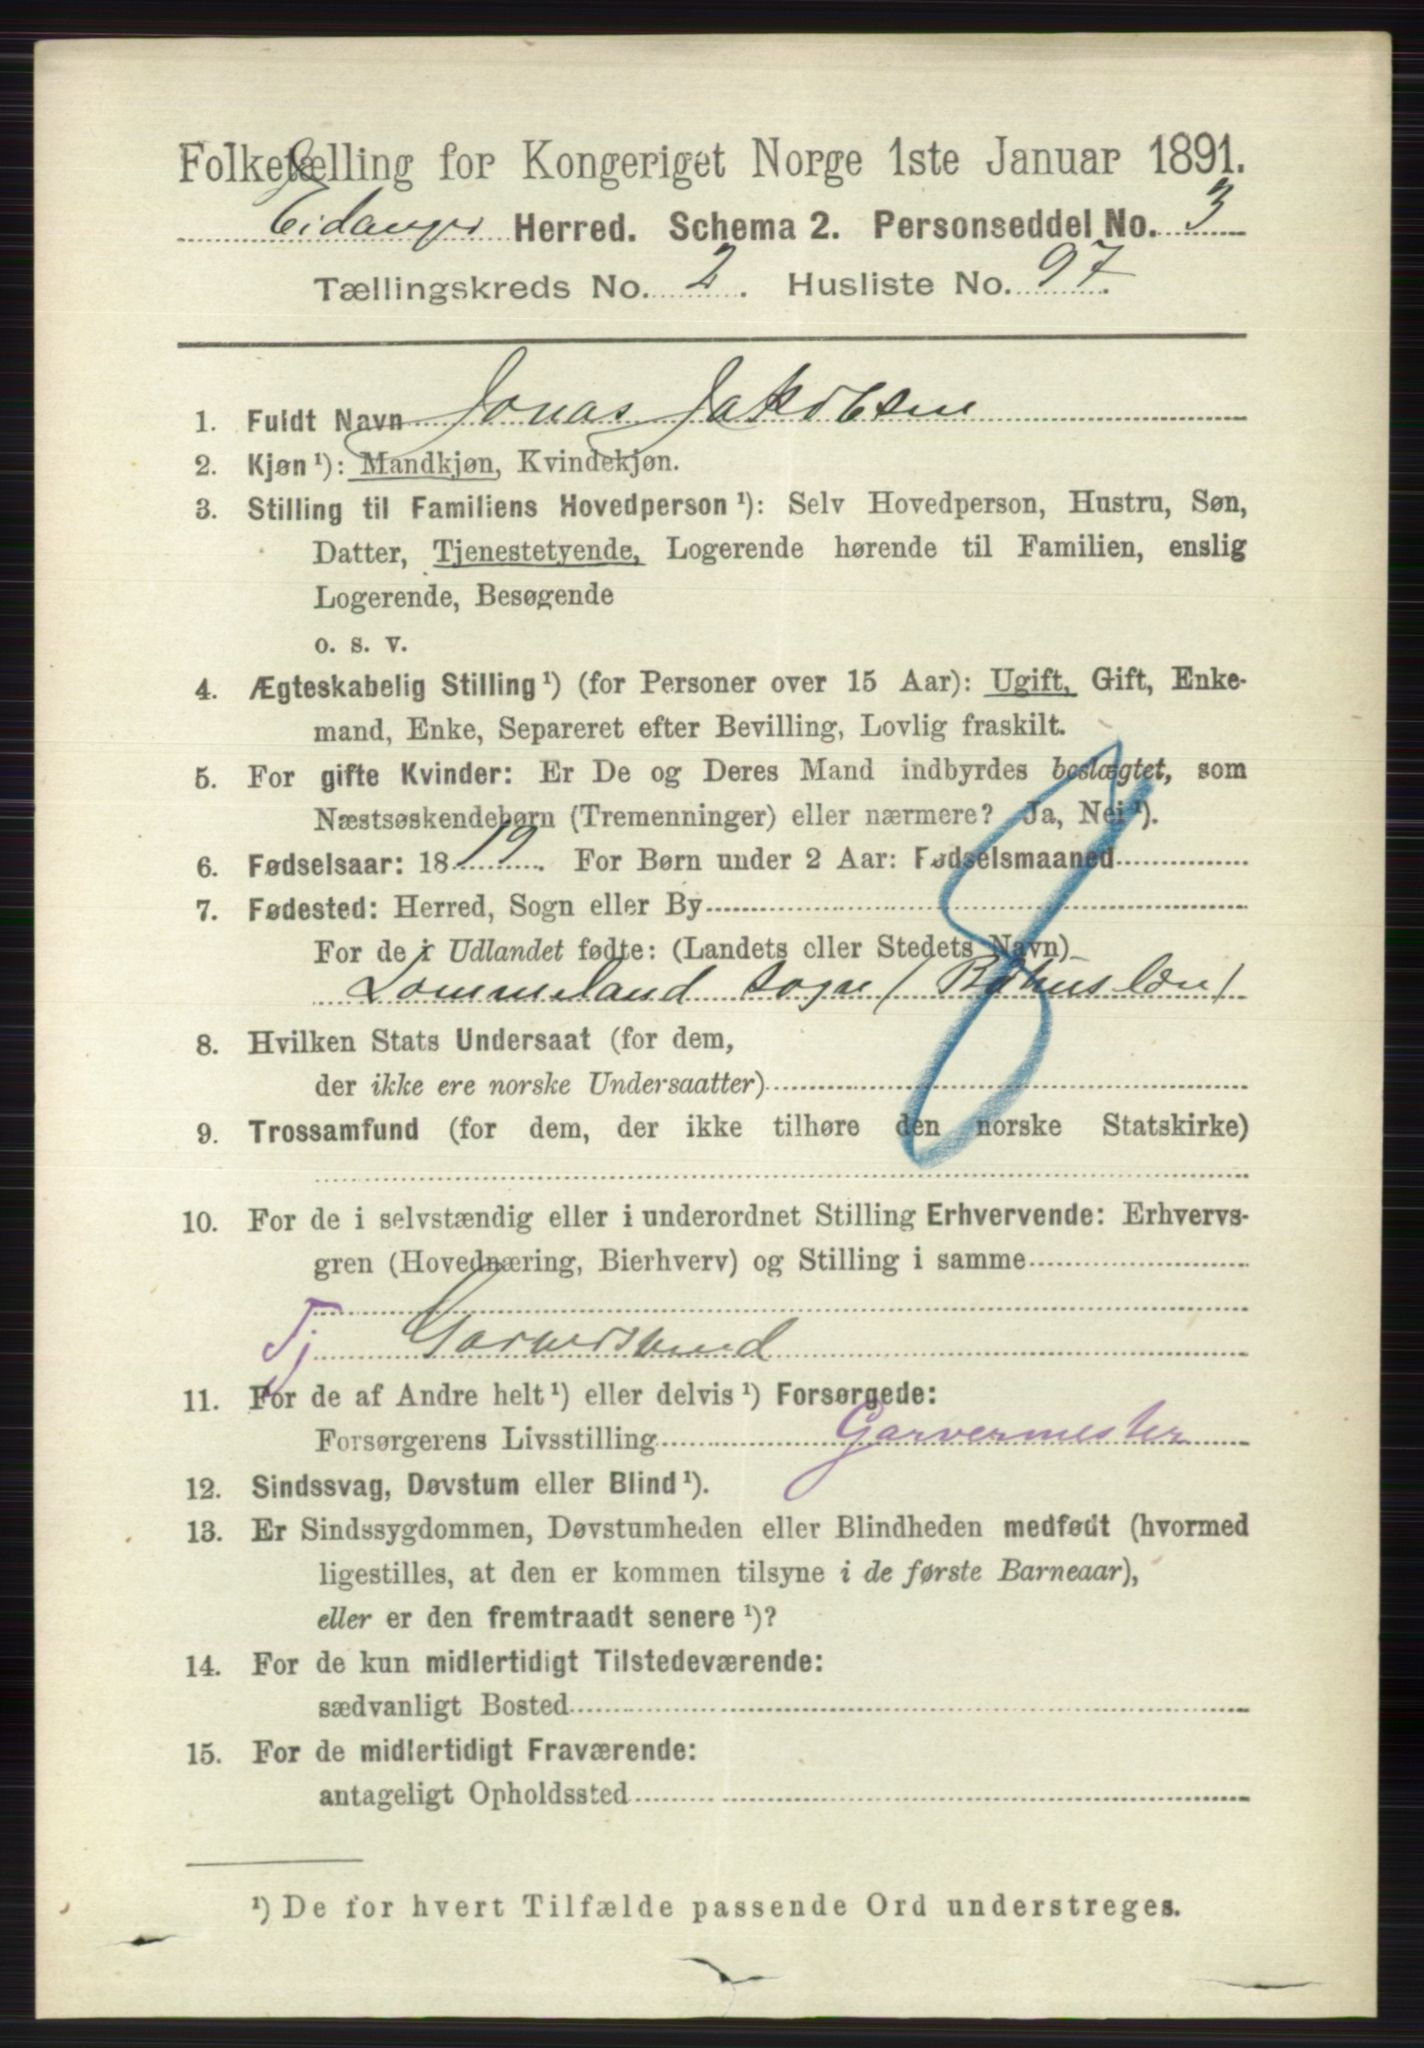 Folketælling for Kongeriget Norge 1ste Januar 1891.
Eidanger Herred. Schema 2. Personseddel No. 3
Tællingskreds No. 2. Husliste No. 97.
1. Fuldt Navn Jonas Jakobsen
2. Kjøn¹): Mandkjøn, Kvindekjøn.
3. Stilling til Familiens Hovedperson¹): Selv Hovedperson, Hustru, Søn,
Datter, Tjenestetyende, Logerende hørende til Familien, enslig
Logerende, Besøgende
o. s. v.
4. Ægteskabelig Stilling¹) (for Personer over 15 Aar): Ugift, Gift, Enke-
mand, Enke, Separeret efter Bevilling, Lovlig fraskilt.
5. For gifte Kvinder: Er De og Deres Mand indbyrdes beslægtet, som
Næstsøskendebørn (Tremenninger) eller nærmere? Ja, Nei¹).
6. Fødselsaar: 1819. For Børn under 2 Aar: Fødselsmaaned
7. Fødested: Herred, Sogn eller By
For de i Udlandet fødte: (Landets eller Stedets Navn)
Lommeland Sogn (Bohuslæn)
8. Hvilken Stats Undersaat (for dem,
der ikke ere norske Undersaatter)
9. Trossamfund (for dem, der ikke tilhøre den norske Statskirke)
10. For de i selvstændig eller i underordnet Stilling Erhvervende: Erhvervs-
gren (Hovednæring, Bierhverv) og Stilling i samme
Tj Garversvend
11. For de af Andre helt¹) eller delvis¹) Forsørgede:
Forsørgerens Livsstilling Garvermester
12. Sindssvag, Døvstum eller Blind¹).
13. Er Sindssygdommen, Døvstumheden eller Blindheden medfødt (hvormed
ligestilles, at den er kommen tilsyne i de første Barneaar),
eller er den fremtraadt senere¹)?
14. For de kun midlertidigt Tilstedeværende:
sædvanligt Bosted
15. For de midlertidigt Fraværende:
antageligt Opholdssted
¹) De for hvert Tilfælde passende Ord understreges.